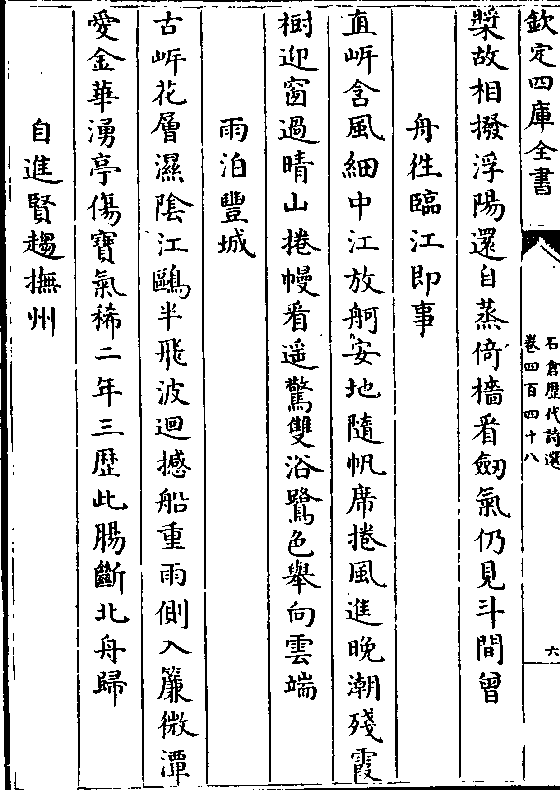 欽定四庫全書
石倉歷代詩選
卷四百四十八
六
槳故相撥浮陽還自蒸倚檣看劒氣仍見斗間曾
舟徃臨江即事
直岍含風細中江放舸安地隨帆席捲風進晚潮殘霞
樹迎窗過晴山捲幔看遥驚雙浴鷺色舉向雲端
雨泊豐城
古岍花層濕陰江鷗半飛波迴撼船重雨側入簾微潭
愛金華湧亭傷寶氣稀二年三歴此腸斷北舟歸
自進賢趨撫州